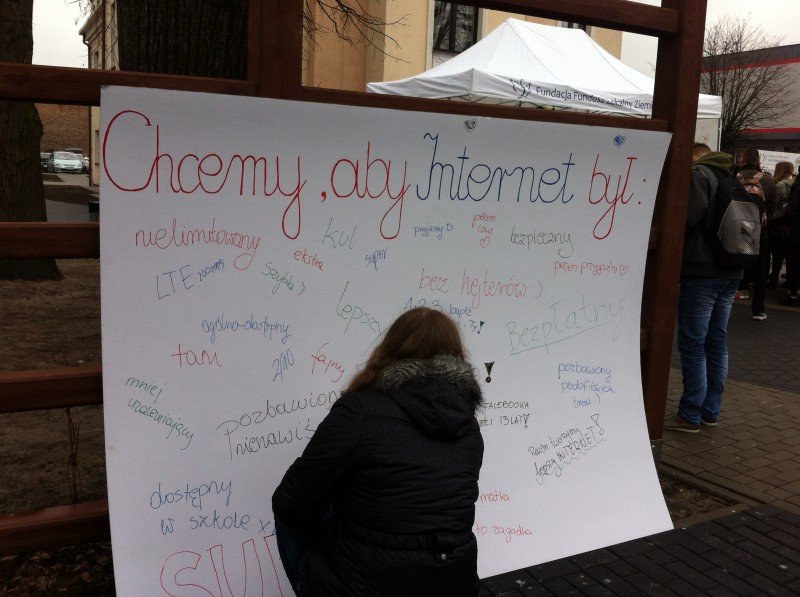 Fundacja Fundusz Lokalny Ziemi
Chcemy, aby Internet był:
nielimitowany
kul
przyjazny
pełen
bezpieczny
LTE
szybki :)
ekstra
super
bez hejterów :)
pełen przyjaźni
lepszy
ogólno-dostępny
Bezpłatny
tani
fajny
mniej
uzależniający
pozbawiony
nienawiści
pozbawiony
pedofilskich
treści!
FACEBOOKA
13 LAT!
Razem tworzymy
lepszy INTERNET!
dostępny
w szkole
matka
to zagadka